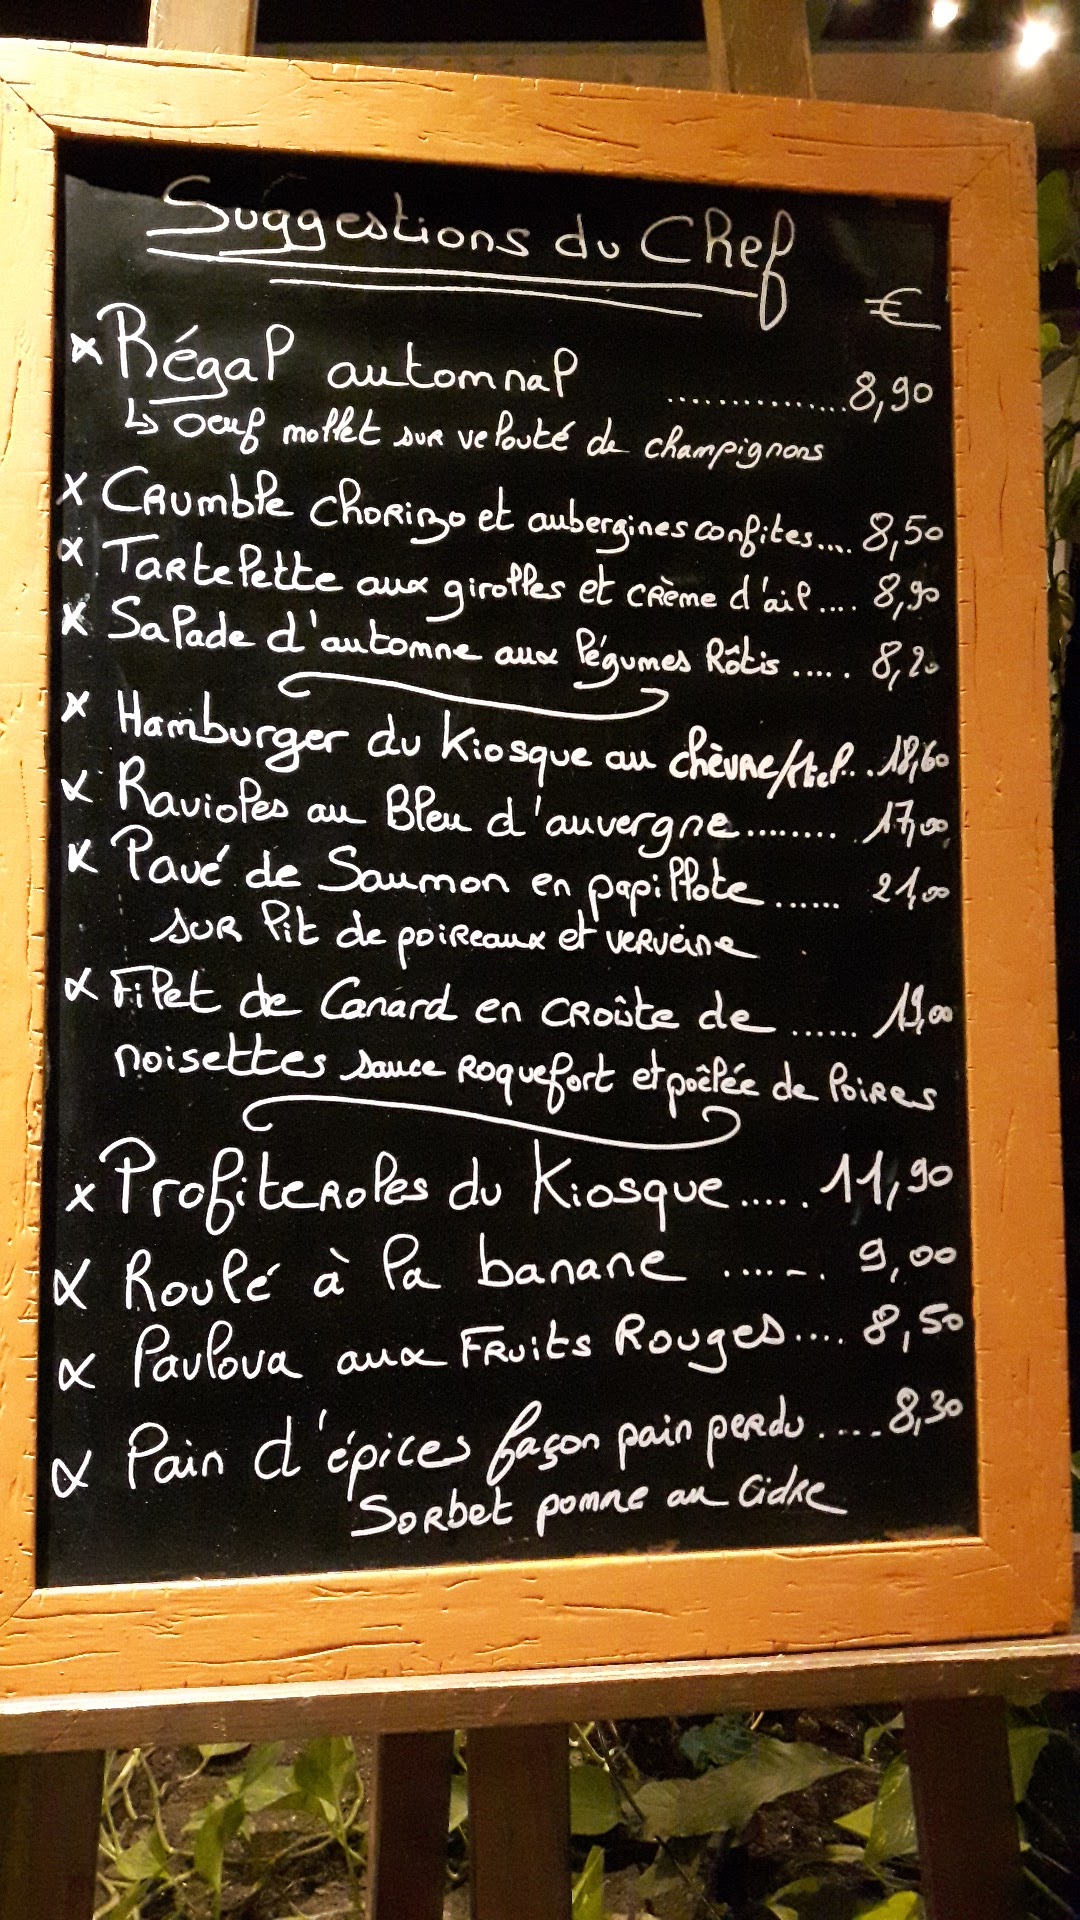 Suggestions du Chef
€
x Régal automnal ............... 8,90
↳ oeuf mollet sur velouté de champignons
x Crumble chorizo et aubergines confites.... 8,50
x Tartelette aux girolles et crème d'ail.... 8,90
x Salade d'automne aux légumes Rôtis ..... 8,20
x Hamburger du Kiosque au chèvre/Miel... 18,60
x Ravioles au Bleu d'auvergne......... 17,00
x Pavé de Saumon en papillote ...... 21,00
sur lit de poireaux et verveine
x Filet de Canard en croûte de ...... 19,00
noisettes sauce Roquefort et poêlée de Poires
x Profiteroles du Kiosque..... 11,90
x Roulé à la banane ....-. 9,00
x Pavlova aux Fruits Rouges.... 8,50
x Pain d'épices façon pain perdu ..... 8,30
Sorbet pomme au Cidre